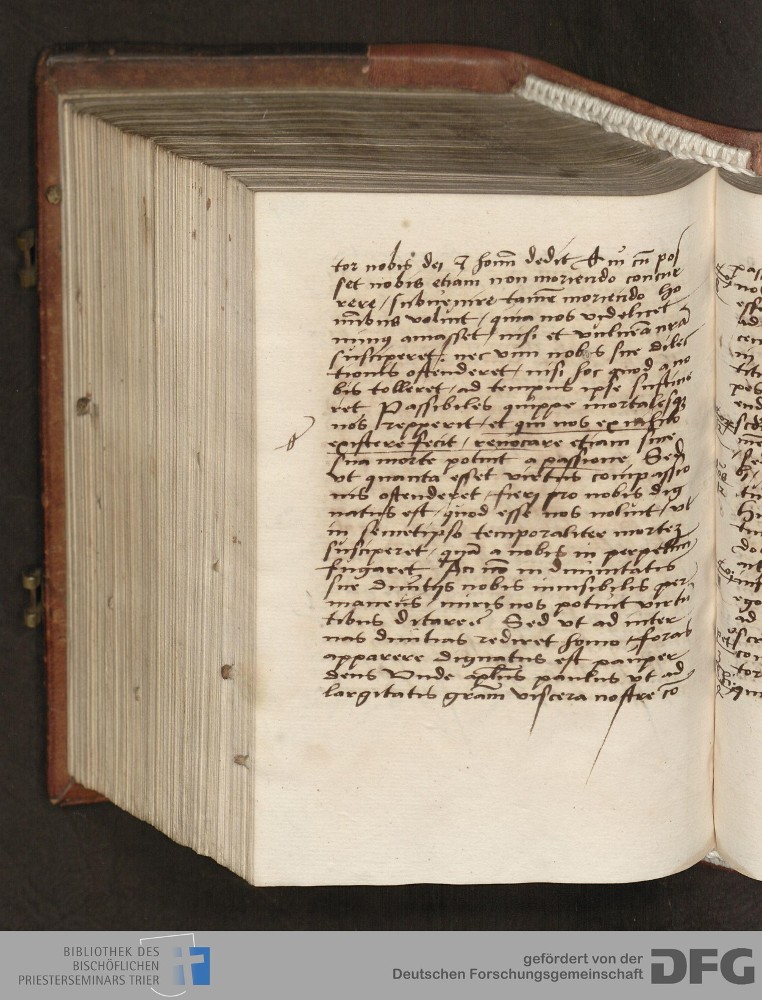 tor nobis dei ⁊ hoīm dedit Qui cū pos
set nobis etiam non moriendo concur
rere / subuenire tamē moriēdo ho
mībus voluit / quia nos videlicet
minus amasset / nisi et vulnera nrā
susciperet / nec vim nobis sue dilec
tionis ostenderet / nisi hoc quod a no
bis tolleret / ad tempus ipse sustine
ret Passibiles quippe mortalesq;
nos repperit / et qui nos ex nihilo
existere fecit / reuocare etiam sine
sua morte potuit a passione Sed
vt quanta esset virtus compassio
nis ostenderet / fieri pro nobis dig
natus est / quod esse nos noluit / vt
in semetipso temporaliter mortē
susciperet / quā a nobis in perpetuū
fugaret An nō in diuinitatis
sue diuitijs nobis inuisibilis per
manens / miris nos potuit virtu
tibus ditare? Sed vt ad inter
nas diuitias rediret homo / foras
apparere dignatus est pauper
deus Vnde aplūs paulus vt ad
largitatis grām viscera nostre cō
BIBLIOTHEK DES
BISCHÖFLICHEN
PRIESTERSEMINARS TRIER
gefördert von der
Deutschen Forschungsgemeinschaft
DFG